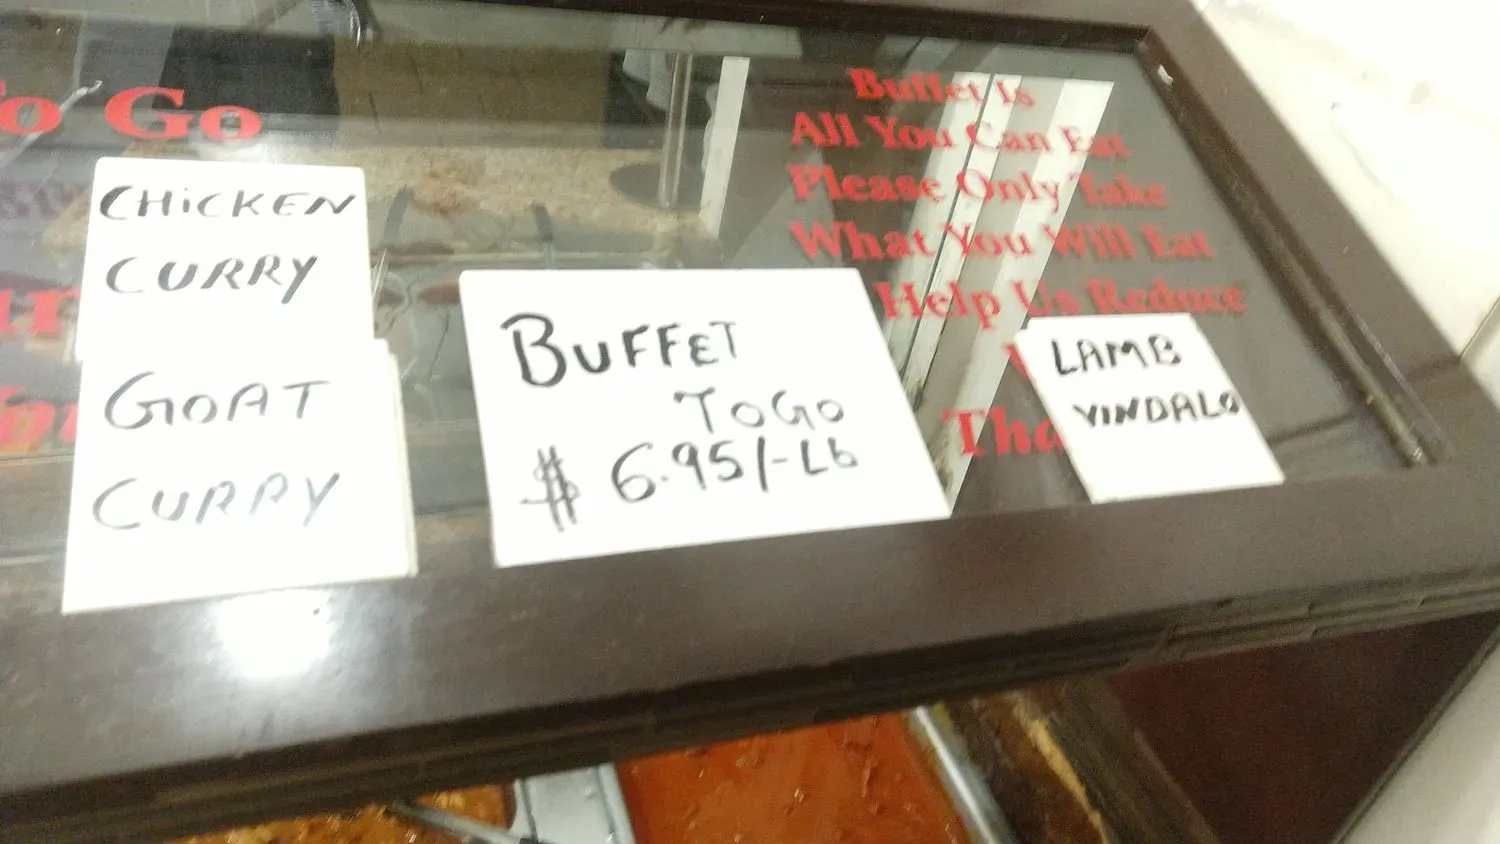 To Go
CHiCKEN
CURRY
GOAT
CURRY
BUFFET
TO GO
$ 6.95/-Lb
Buffet Is
All You Can Eat
Please Only Take
What You Will Eat
Help Us Reduce
LAMB
VINDALO